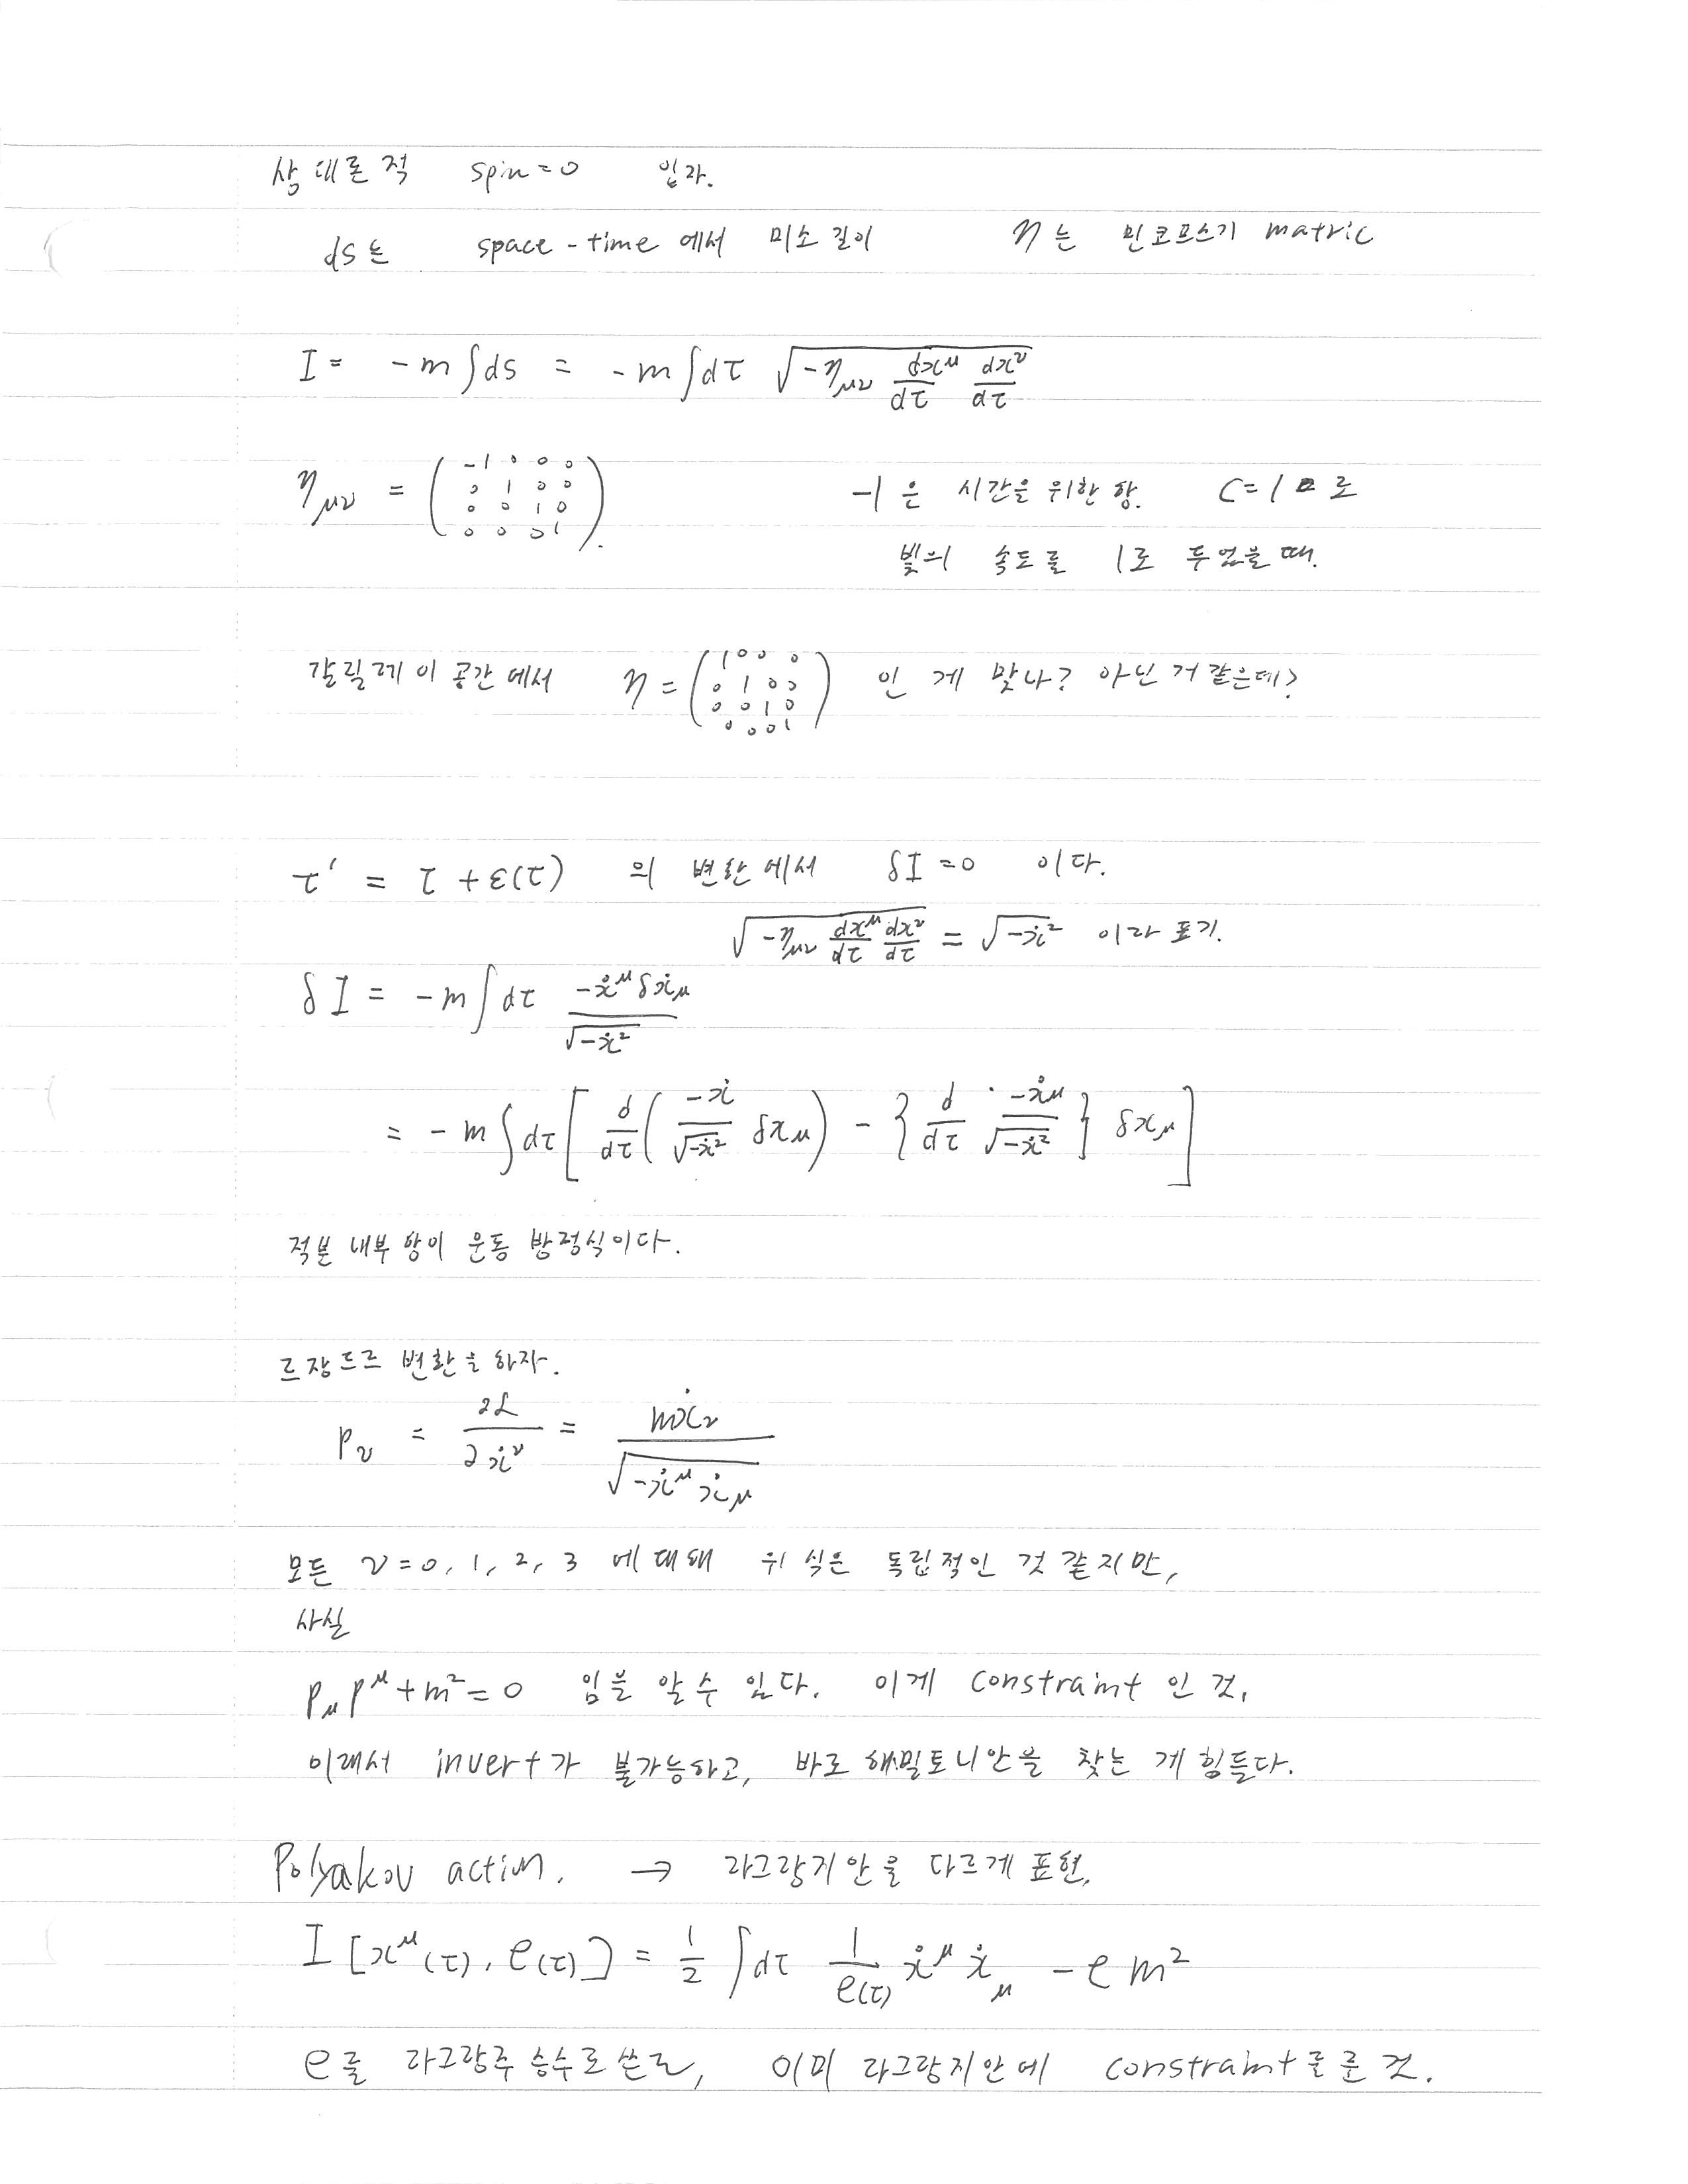 상대론적 spin=0 입자.
ds는 space-time에서 미소길이 η는 민코프스키 matric
I = -m ∫ds = -m ∫dτ √(-η_μν dx^μ/dτ dx^ν/dτ)
η_μν = ( -1 0 0 0 / 0 1 0 0 / 0 0 1 0 / 0 0 0 1 ). -1은 시간을 위한 항. C=1로
빛의 속도를 1로 두었을 때.
갈릴레이 공간에서 η = ( 1 0 0 0 / 0 1 0 0 / 0 0 1 0 / 0 0 0 1 ) 인 게 맞나? 아닌 거 같은데?
τ' = τ + ε(τ) 의 변환에서 δI = 0 이다.
√(-η_μν dx^μ/dτ dx^ν/dτ) = √(-ẋ²) 이라 표기.
δI = -m ∫dτ (-ẋ^μ δẋ_μ)/√(-ẋ²)
= -m ∫dτ [ d/dτ ( -ẋ/√(-ẋ²) δx_μ ) - { d/dτ · -ẋ^μ/√(-ẋ²) } δx_μ ]
적분 내부 항이 운동 방정식이다.
르장드르 변환을 하자.
p_ν = ∂L/∂ẋ^ν = mẋ_ν/√(-ẋ^μ ẋ_μ)
모든 ν=0, 1, 2, 3 에 대해 위 식은 독립적인 것 같지만,
사실
p_μ p^μ + m² = 0 임을 알 수 있다. 이게 constraint 인 것.
이래서 invert가 불가능하고, 바로 해밀토니안을 찾는 게 힘들다.
Polyakov action. → 라그랑지안을 다르게 표현.
I [x^μ(τ), e(τ)] = 1/2 ∫dτ 1/e(τ) ẋ^μ ẋ_μ - e m²
e를 라그랑주 승수로 쓴, 이미 라그랑지안에 constraint를 준 것.